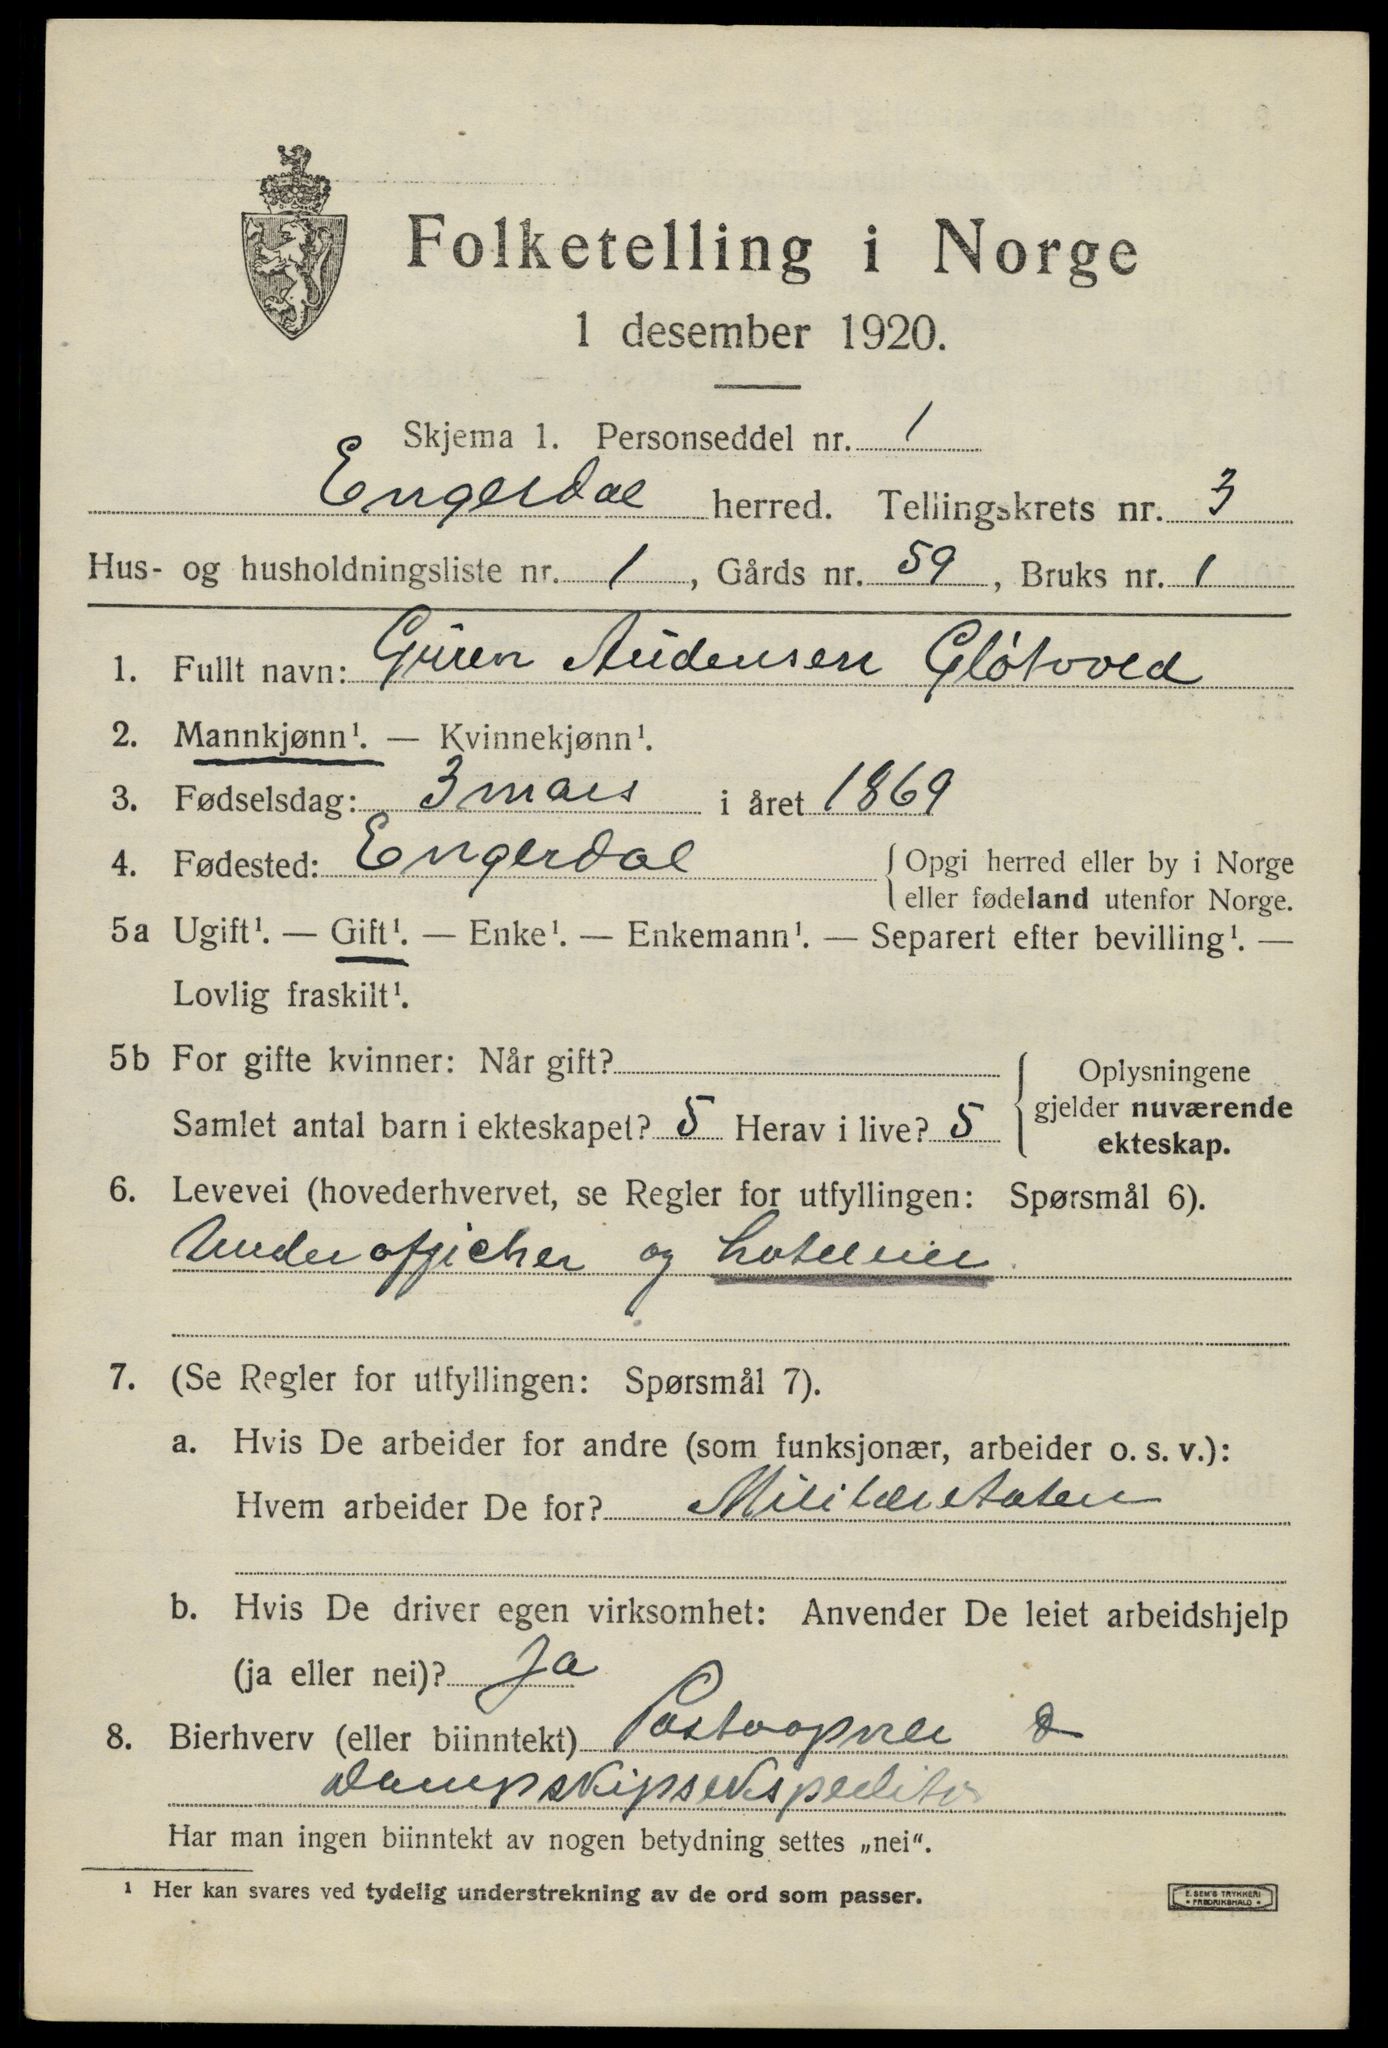 Folketelling i Norge
1 desember 1920.
Skjema 1. Personseddel nr. 1
Engerdal herred. Tellingskrets nr. 3
Hus- og husholdningsliste nr. 1, Gårds nr. 59, Bruks nr. 1
1. Fullt navn: Audensen Gløtvold
2. Mannkjønn¹. — Kvinnekjønn¹.
3. Fødselsdag: 3 mars i året 1869
4. Fødested: Engerdal { Opgi herred eller by i Norge
eller fødeland utenfor Norge.
5a Ugift¹. — Gift¹. — Enke¹. — Enkemann¹. — Separert efter bevilling¹. —
Lovlig fraskilt¹.
5b For gifte kvinner: Når gift?
Samlet antal barn i ekteskapet? 5 Herav i live? 5
Oplysningene
gjelder nuværende
ekteskap.
6. Levevei (hovederhvervet, se Regler for utfyllingen: Spørsmål 6).
Underofficer og hoteleier
7. (Se Regler for utfyllingen: Spørsmål 7).
a. Hvis De arbeider for andre (som funksjonær, arbeider o. s. v.):
Hvem arbeider De for? Militæretaten
b. Hvis De driver egen virksomhet: Anvender De leiet arbeidshjelp
(ja eller nei)? Ja
8. Bierhverv (eller biinntekt) Postaapner &
dampskipsekspeditør
Har man ingen biinntekt av nogen betydning settes „nei“.
¹ Her kan svares ved tydelig understrekning av de ord som passer.
E. SEM'S TRYKKERI
• FREDRIKSHALD •